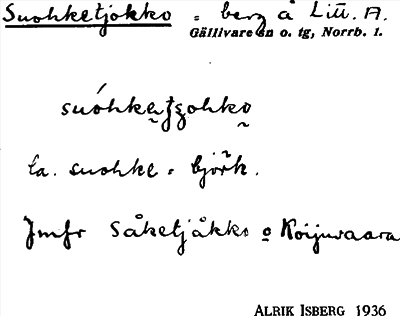 Suohketjokko = berg å Litt. A.
Gällivare sn o. tg, Norrb. l.
suóhketjohko
la. suohke = björk.
Jmfr Såketjåkko o Koijuvaara
ALRIK ISBERG 1936